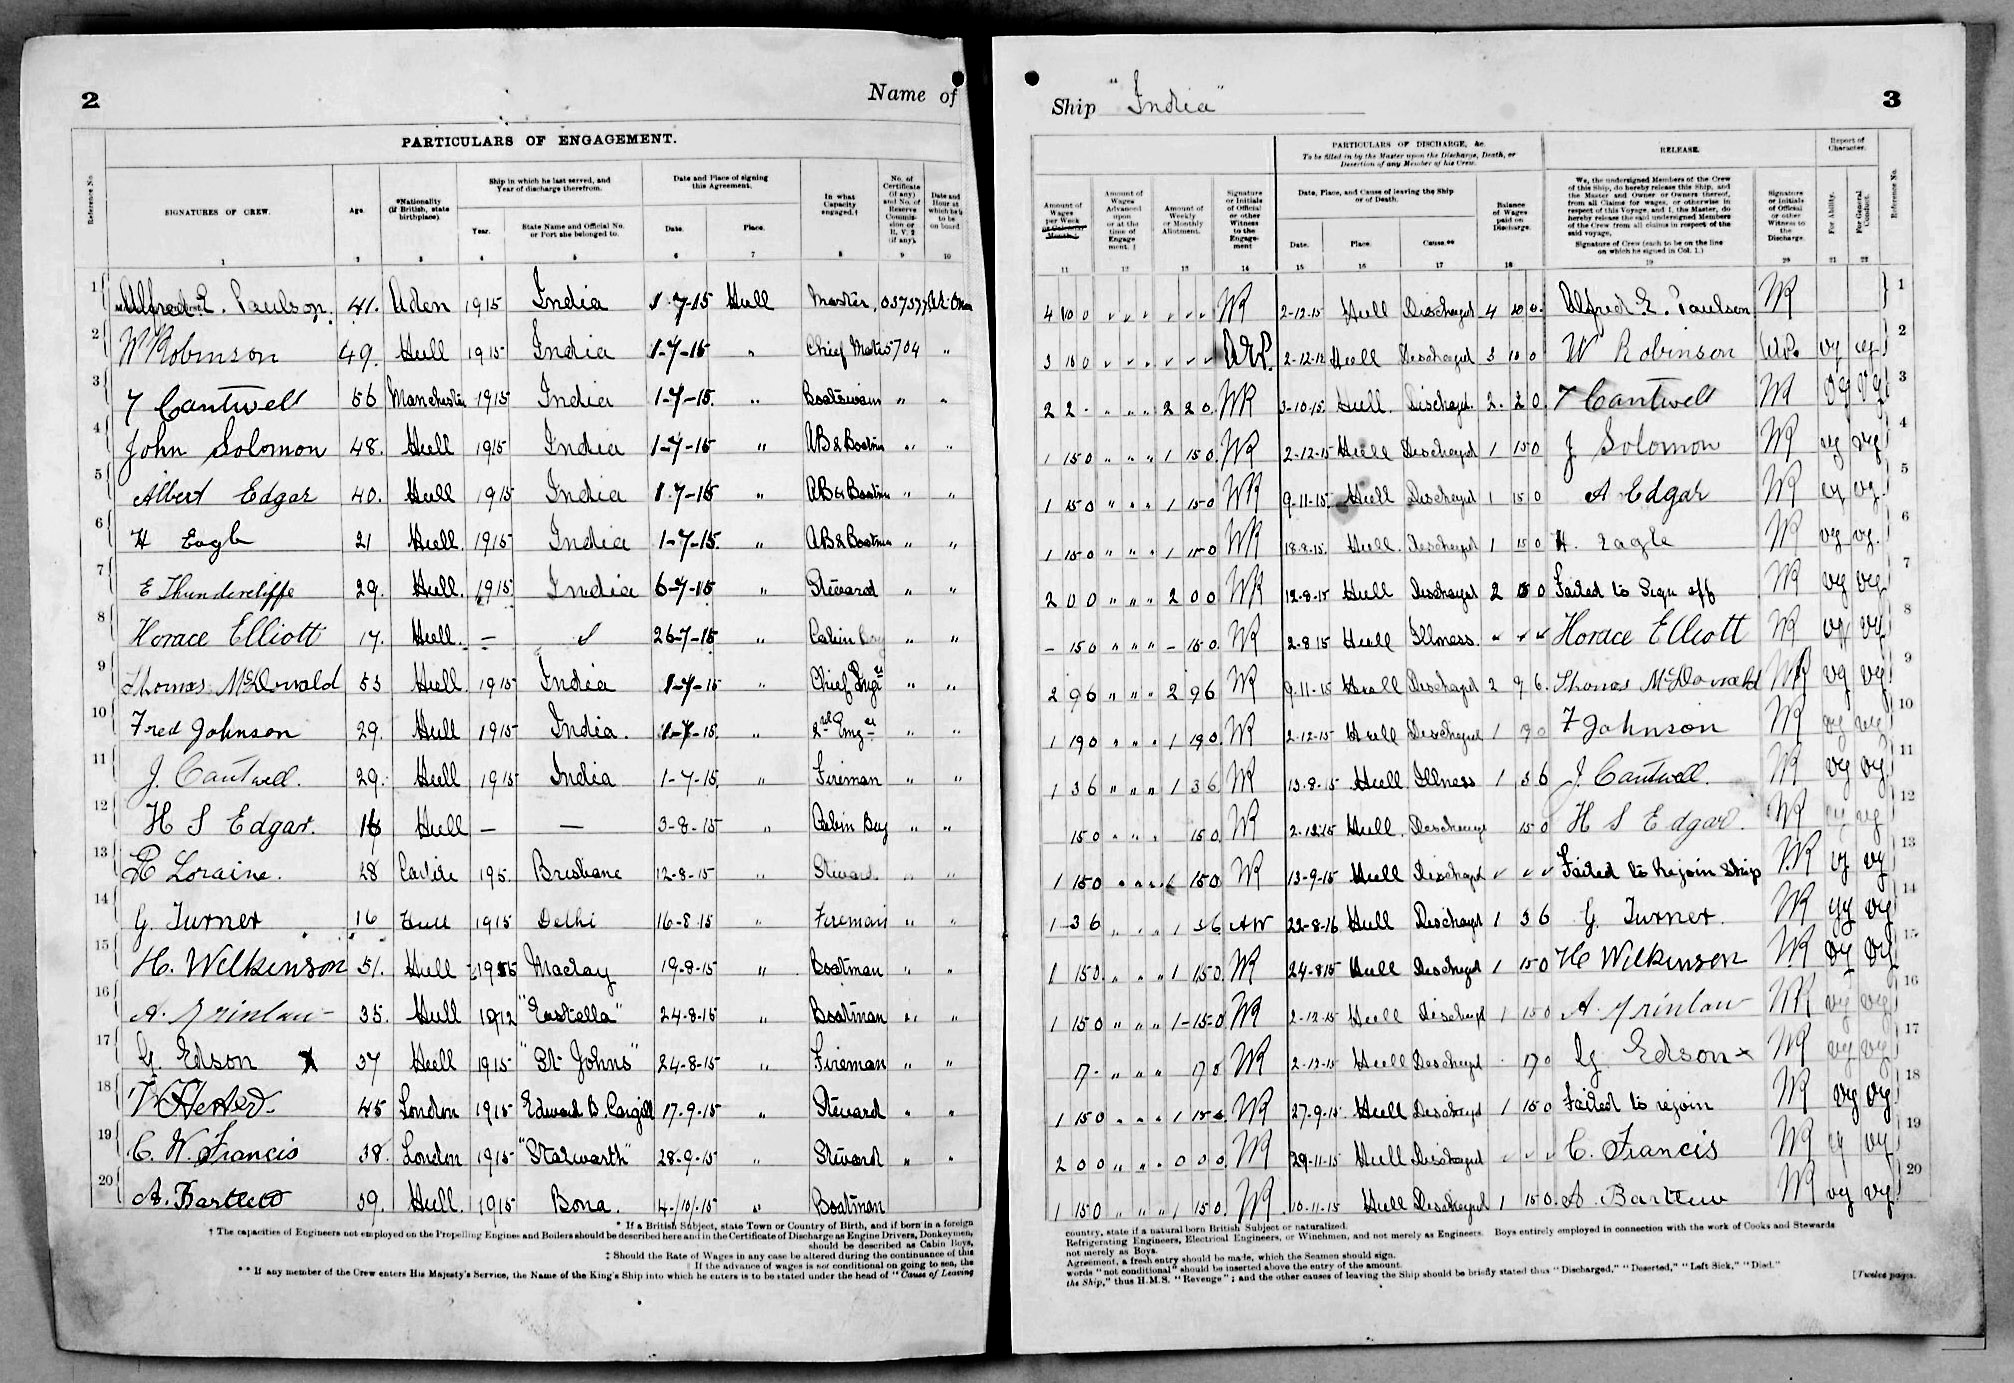 2
Name of
PARTICULARS OF ENGAGEMENT.
Reference No.
SIGNATURES OF CREW.
Age.
*Nationality (if British, state birthplace).
Ship in which he last served, and Year of discharge therefrom.
Year.
State Name and Official No. or Port she belonged to.
Date and Place of signing this Agreement.
Date.
Place.
In what Capacity engaged.†
No. of Certificate (if any) and No. of Reserve Commission or R. V. 2 (if any).
Date and Hour at which he is to be on board
1 2 3 4 5 6 7 8 9 10
1 Alfred E. Paulson. 41. Aden 1915 India 1-7-15 Hull Master
2 W Robinson 49. Hull 1915 India 1-7-15 " Chief Mate 5704 "
3 T Cantwell 56 Manchester 1915 India 1-7-15. " Boatswain " "
4 John Solomon 48. Hull 1915 India 1-7-15 " AB & Boatmn " "
5 Albert Edgar 40. Hull 1915 India 1-7-15 " AB & Boatmn " "
6 H Eagle 21 Hull. 1915 India 1-7-15. " AB & Boatmn " "
7 E Thundercliffe 29. Hull. 1915 India 6-7-15 " Steward " "
8 Horace Elliott 17. Hull. — 26-7-15 " Cabin Boy " "
9 Thomas McDonald 53 Hull. 1915 India 1-7-15 " Chief Engr " "
10 Fred Johnson 29. Hull 1915 India. 1-7-15. " 2nd Engr " "
11 J. Cantwell. 29. Hull 1915 India 1-7-15. " Fireman " "
12 H S Edgar. 16 Hull — — 3-8-15 " Cabin Boy " "
13 Loraine. 28 1915. Brisbane 12-8-15 " Steward " "
14 G. Turner 16 Hull 1915 Delhi 16-8-15 " Fireman " "
15 H. Wilkinson 51. Hull 1915 Mackay 19-8-15 " Boatman " "
16 A. 35. Hull 1912 "Eastella" 24-8-15 " Boatman " "
17 G Edson X 37 Hull 1915 "St Johns" 24-8-15 " Fireman "
18 45 London 1915 Edward B. Cargill 17-9-15 " Steward " "
19 C. W. Francis 38. London 1915 "Stalwarth" 28-9-15 " Steward " "
20 A. Bartlett 39. Hull. 1915 Bona. 4-10-15 " Boatman
* If a British Subject, state Town or Country of Birth, and if born in a foreign
† The capacities of Engineers not employed on the Propelling Engines and Boilers should be described here and in the Certificate of Discharge as Engine Drivers, Donkeymen,
should be described as Cabin Boys,
‡ Should the Rate of Wages in any case be altered during the continuance of this
|| If the advance of wages is not conditional on going to sea, the
** If any member of the Crew enters His Majesty's Service, the Name of the King's Ship into which he enters is to be stated under the head of "Cause of Leaving
Ship "India"
3
PARTICULARS OF DISCHARGE, &c.
To be filled in by the Master upon the Discharge, Death, or Desertion of any Member of his Crew.
RELEASE.
Report of Character.
Amount of Wages per Week or Calendar Month.‡
Amount of Wages Advanced upon or at the time of Engagement. ||
Amount of Weekly or Monthly Allotment.
Signature or Initials of Official or other Witness to the Engagement
Date, Place, and Cause of leaving the Ship or of Death.
Date.
Place.
Cause.**
Balance of Wages paid on Discharge.
We, the undersigned Members of the Crew of this Ship, do hereby release this Ship, and the Master and Owner or Owners thereof, from all Claims for wages, or otherwise in respect of this Voyage, and I, the Master, do hereby release the said undersigned Members of the Crew from all claims in respect of the said voyage.
Signature of Crew (each to be on the line on which he signed in Col. 1.)
Signature or Initials of Official or other Witness to the Discharge.
For Ability.
For General Conduct.
Reference No.
11 12 13 14 15 16 17 18 19 20 21 22
4 10 0 WR 2-12-15 Hull Discharged 4 10 0. Alfred E. Paulson WR 1
3 10 0 2-12-15 Hull Discharged 3 10 0 W Robinson vg vg 2
2 2 - 2 2 0. WR 3-10-15. Hull. Discharged. 2. 2 0. T Cantwell WR vg vg 3
1 15 0 1 15 0. WR 2-12-15 Hull Discharged 1 15 0 J Solomon WR vg vg 4
1 15 0 1 15 0 WR 9-11-15. Hull Discharged 1 15 0 A Edgar WR vg vg. 5
1 15 0 1 15 0 WR 18-8-15. Hull. Discharged 1 15 0 H. Eagle WR vg vg. 6
2 0 0 2 0 0 WR 12-8-15 Hull Discharged 2 0 0 Failed to sign off WR vg vg 7
- 15 0 - 15 0. WR 2-8-15 Hull Illness. Horace Elliott WR vg vg 8
2 9 6 2 9 6 WR 9-11-15 Hull Discharged 2 9 6. Thomas McDonald WR vg vg 9
1 19 0 1 19 0. WR 2-12-15 Hull Discharged 1 9 0 F Johnson WR vg vg 10
1 3 6 1 3 6. WR 13-8-15 Hull Illness 1 3 6 J. Cantwell. WR vg vg. 11
15 0 15 0. WR 2-12-15 Hull. Discharged 15 0 H S Edgar. WR vg vg 12
1 15 0 1 15 0. WR 13-9-15 Hull Discharged Failed to Rejoin Ship WR vg vg 13
1 3 6 1 3 6 AW 22-8-16 Hull Discharged 1 3 6 G Turner. WR vg vg 14
1 15 0. 1 15 0. WR 24-8-15 Hull Discharged 1 15 0 H Wilkinson WR vg vg 15
1 15 0 1-15-0 WR 2-12-15 Hull Discharged 1 15 0 A. WR vg vg 16
7 - 7 0 WR 2-12-15 Hull Discharged 17 0 G Edson x WR vg vg 17
1 15 0 1 15 0 WR 27-9-15 Hull Discharged 1 15 0 Failed to rejoin WR vg vg 18
2 0 0 0 0 0. WR 29-11-15 Hull Discharged C. Francis WR vg vg 19
1 15 0 1 15 0. WR 10-11-15 Hull Discharged 1 15 0. A. Bartlett WR vg vg 20
country, state if a natural born British Subject or naturalized.
Refrigerating Engineers, Electrical Engineers, or Winchmen, and not merely as Engineers. Boys entirely employed in connection with the work of Cooks and Stewards
not merely as Boys.
Agreement, a fresh entry should be made, which the Seamen should sign.
words "not conditional" should be inserted above the entry of the amount.
the Ship," thus H.M.S. "Revenge"; and the other causes of leaving the Ship should be briefly stated thus "Discharged," "Deserted," "Left Sick," "Died."
[Twelve pages.